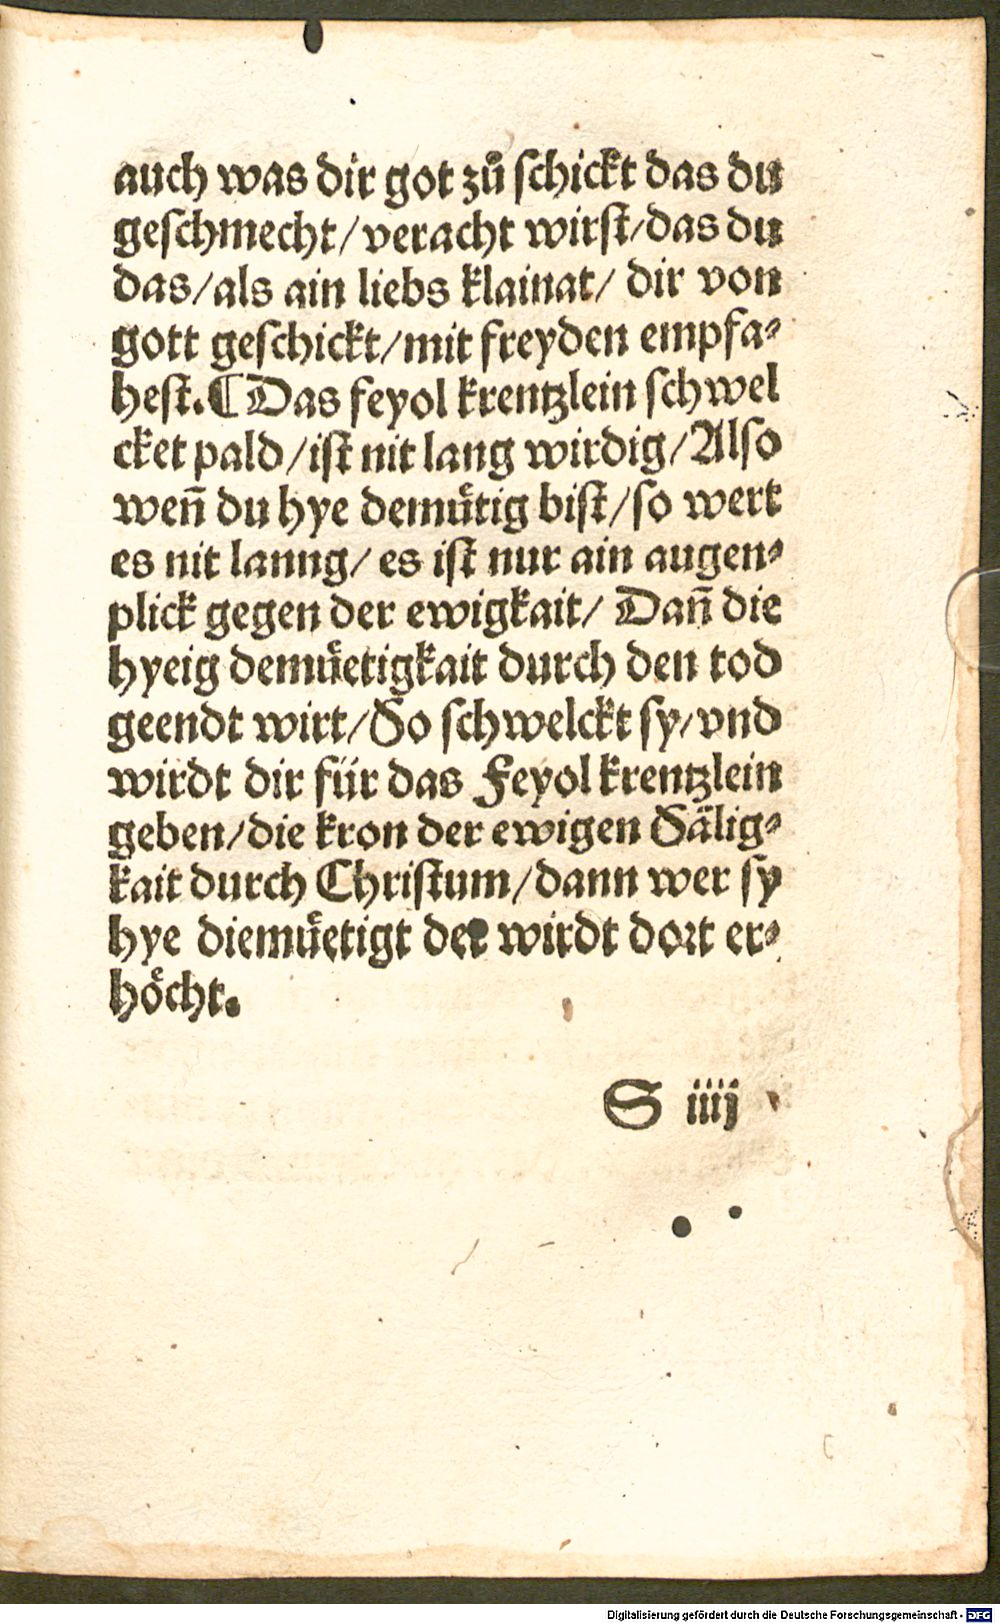 auch was dir got zů ſchickt das du
geſchmecht/veracht wirſt/das du
das/als ain liebs klainat/ dir von
gott geſchickt/mit freyden empfa⸗
heſt.¶Das feyol krentzlein ſchwel
cket pald/iſt nit lang wirdig/Alſo
wen̄ du hye demuͤtig biſt/ſo wert
es nit lanng/ es iſt nur ain augen⸗
plick gegen der ewigkait/ Dan̄ die
hyeig demuͤetigkait durch den tod
geendt wirt/So ſchwelckt ſy/vnd
wirdt dir für das Feyol krentzlein
geben/die kron der ewigen Saͤlig⸗
kait durch Chriſtum/dann wer ſy
hye diemuͤetigt der wirdt dort er⸗
hoͤcht.
S iiij
Digitalisierung gefördert durch die Deutsche Forschungsgemeinschaft - DFG